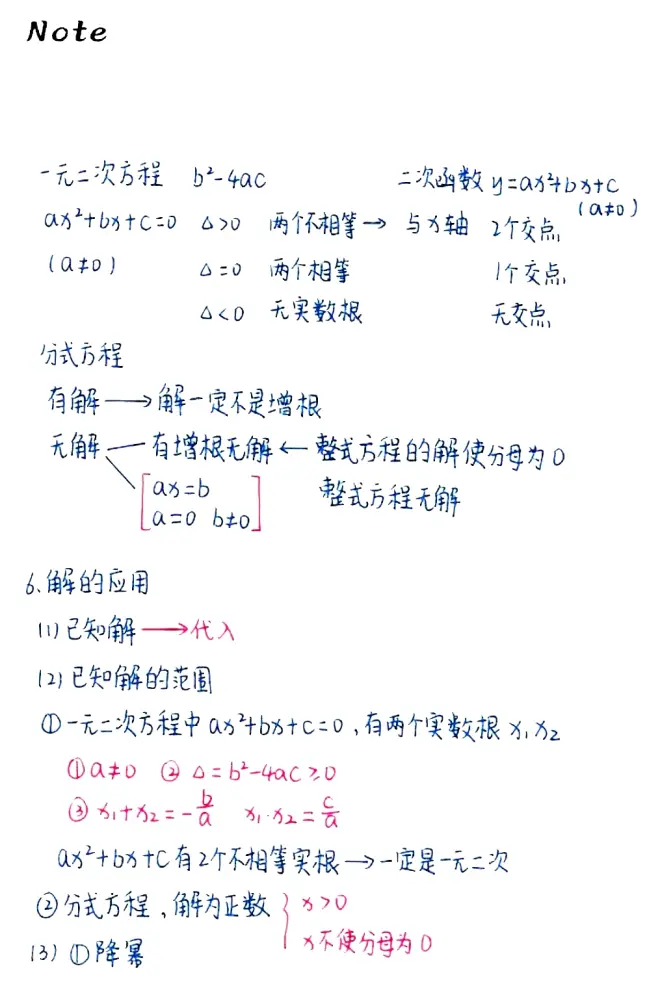 Note
一元二次方程 b²-4ac 二次函数 y=ax²+bx+c
(a≠0)
ax²+bx+c=0 △>0 两个不相等→ 与x轴 2个交点
(a≠0) △=0 两个相等 1个交点
△<0 无实数根 无交点
分式方程
有解→解一定不是增根
无解—有增根无解←整式方程的解使分母为0
ax=b 整式方程无解
a=0 b≠0
6、解的应用
(1)已知解→代入
(2)已知解的范围
①一元二次方程中ax²+bx+c=0,有两个实数根x₁x₂
①a≠0 ②△=b²-4ac≥0
③x₁+x₂=-b/a x₁·x₂=c/a
ax²+bx+c有2个不相等实根→一定是一元二次
②分式方程,解为正数{x>0
x不使分母为0
(3)①降幂